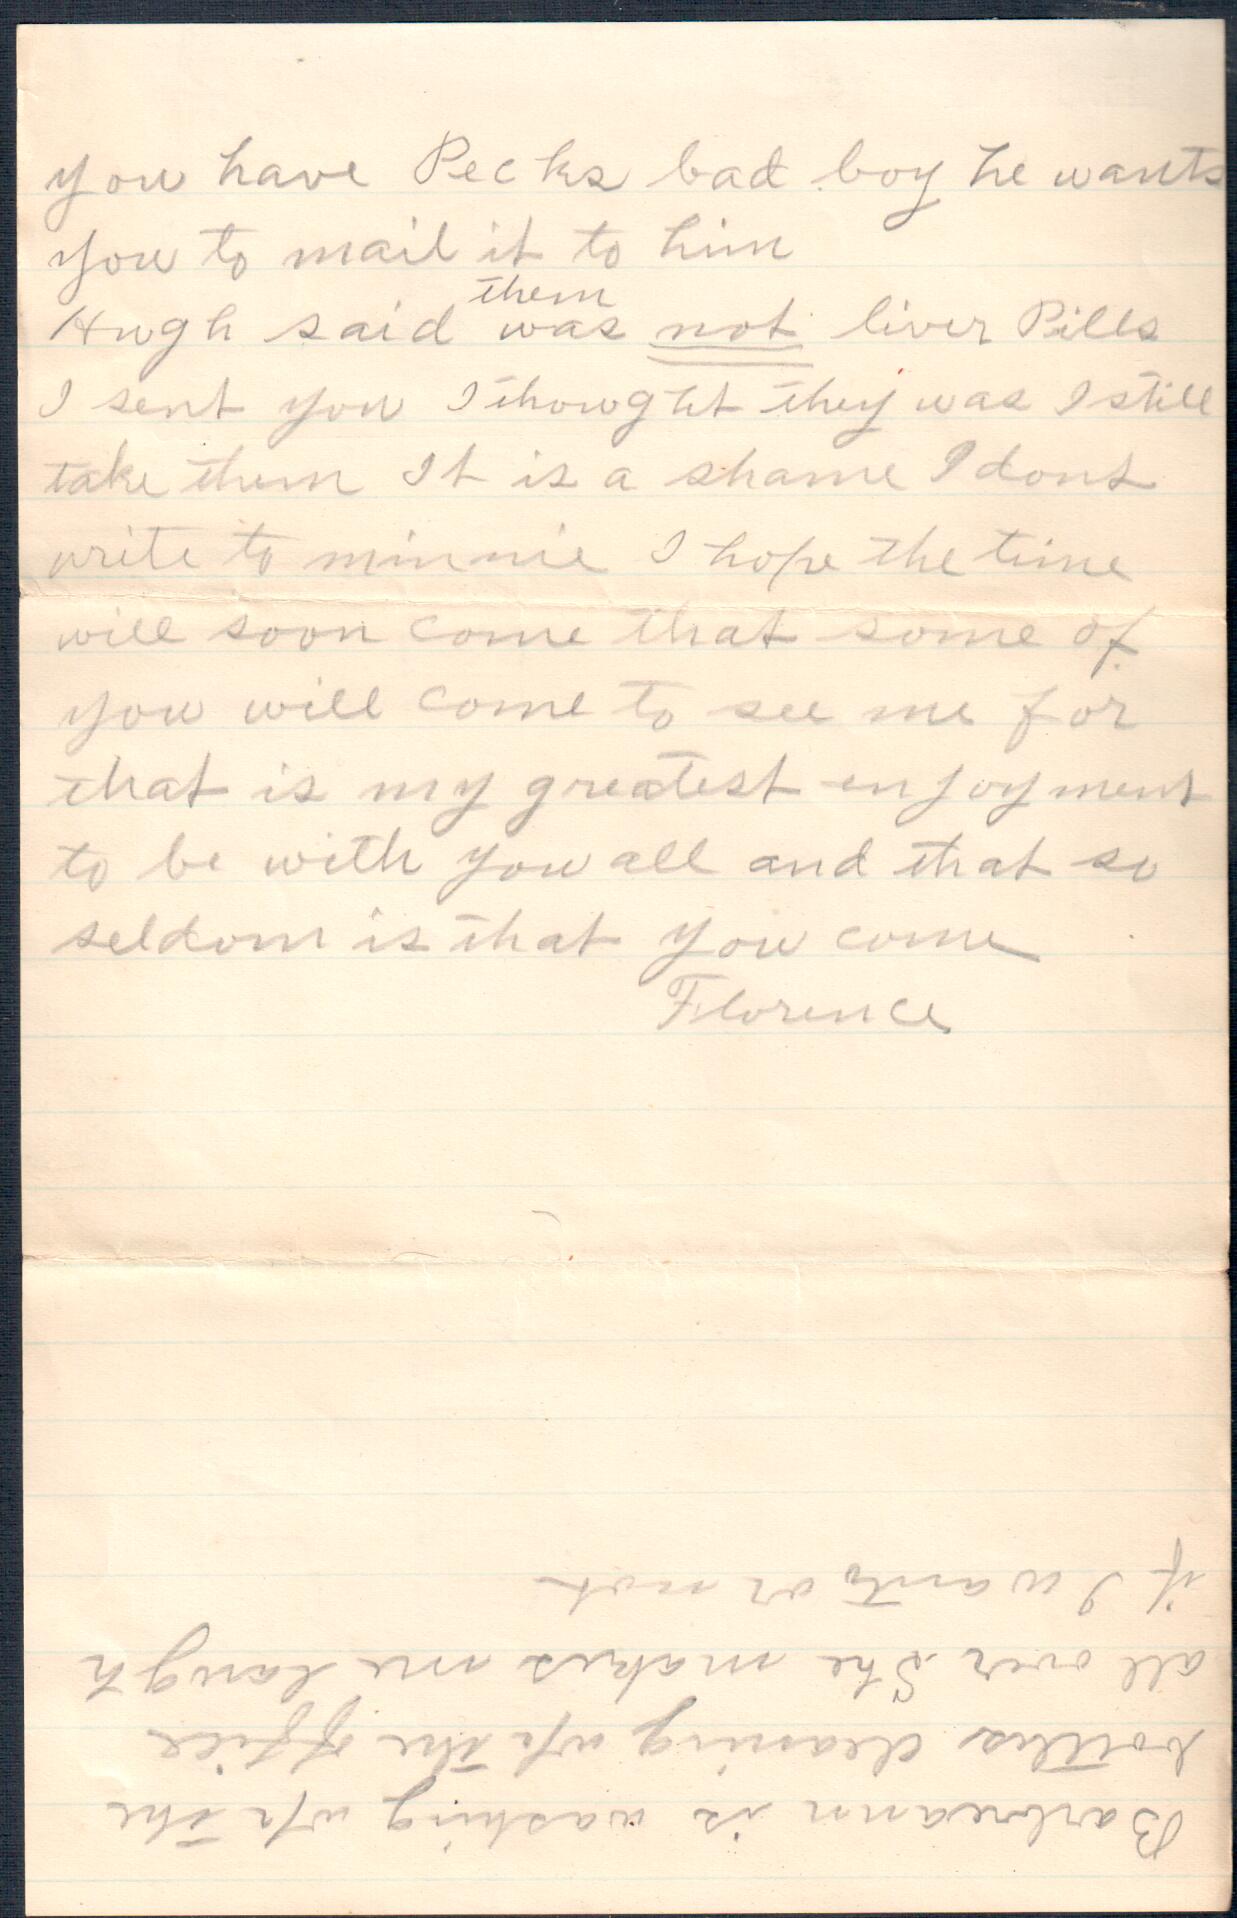 you have Pecks bad boy he wants
you to mail it to him
Hugh said them was not liver Pills
I sent you I thowght they was I still
take them It is a shame I dont
write to minnie I hope the time
will soon come that some of
you will come to see me for
that is my greatest enjoyment
to be with you all and that so
seldom is that you come
Florence
Barbreann is washing up the
bottles cleaning up the office
all over She makes me laugh
if I want to or not